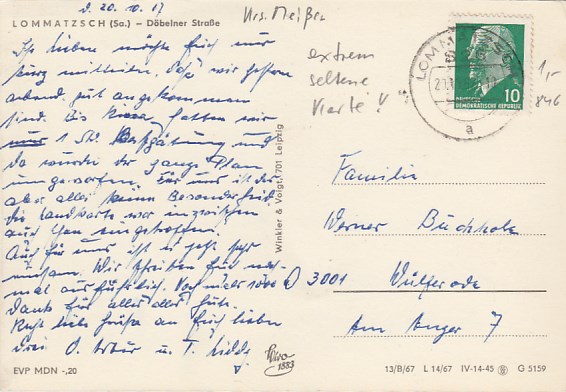 d. 20.10.67
LOMMATZSCH (Sa.) — Döbelner Straße
Krs. Meißen
extrem
seltene
Karte!
1,-
846
LOMMATZSCH
a
10
DEUTSCHE
DEMOKRATISCHE REPUBLIK
Ihr Lieben möchte Euch nur
kurz mitteilen, daß wir gestern
abend gut angekommen
sind. Bis hatten wir
nur 1 Std. Verspätung und
da wurde der ganze Plan
umgeworfen. Für uns ist der
aber alles keine Besonderheit.
Die Landkarte war inzwischen
auch schon eingetroffen.
Auch für uns ist es jetzt sehr
einsam. Wir schreiben Euch noch-
mal ausführlich. Nochmals 1000
Dank für alles alles Gute.
Recht liebe Grüße an Euch lieben
drei O. Artur u. T.
Winkler & Voigt, 7701 Leipzig
Familie
Werner Buchholz
3001 Wülferode
Am Anger 7
EVP MDN -,20
1883
13/B/67 L 14/67 IV-14-45 G 5159